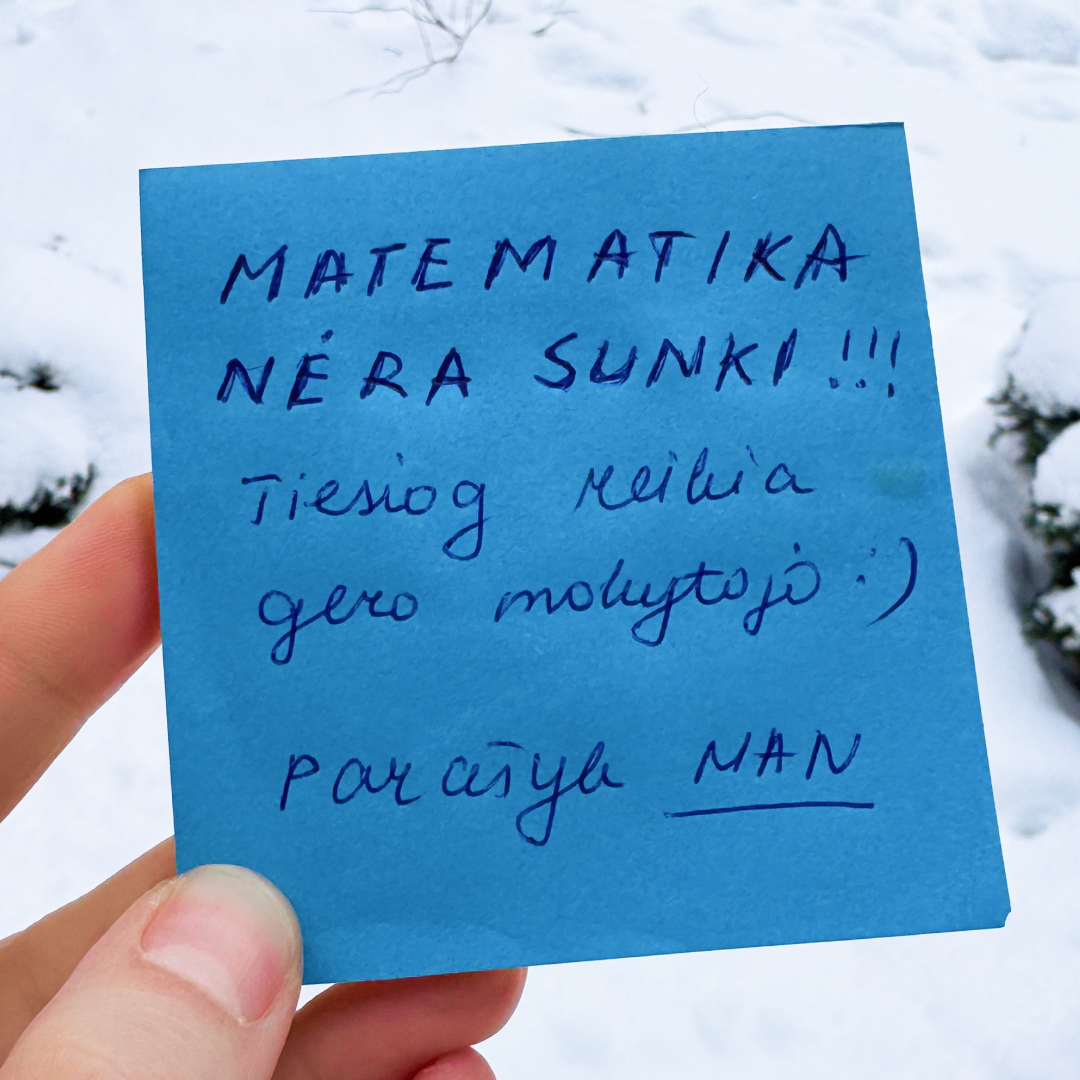 MATEMATIKA
NĖRA SUNKI!!!
Tiesiog reikia
gero mokytojo :)
Parašyk NAN